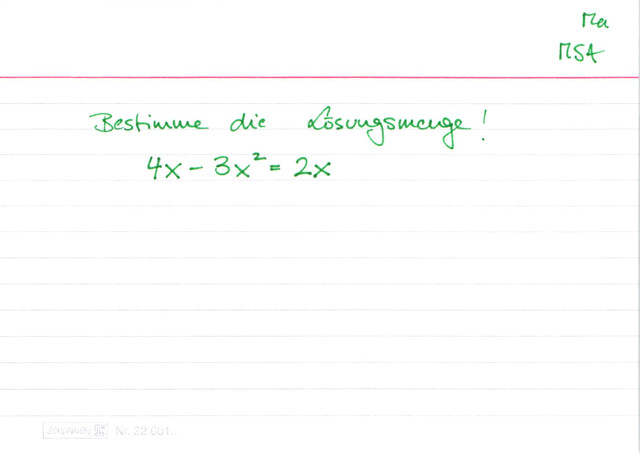 Ma
MSA
Bestimme die Lösungsmenge!
4x - 3x² = 2x
Nr. 22 601